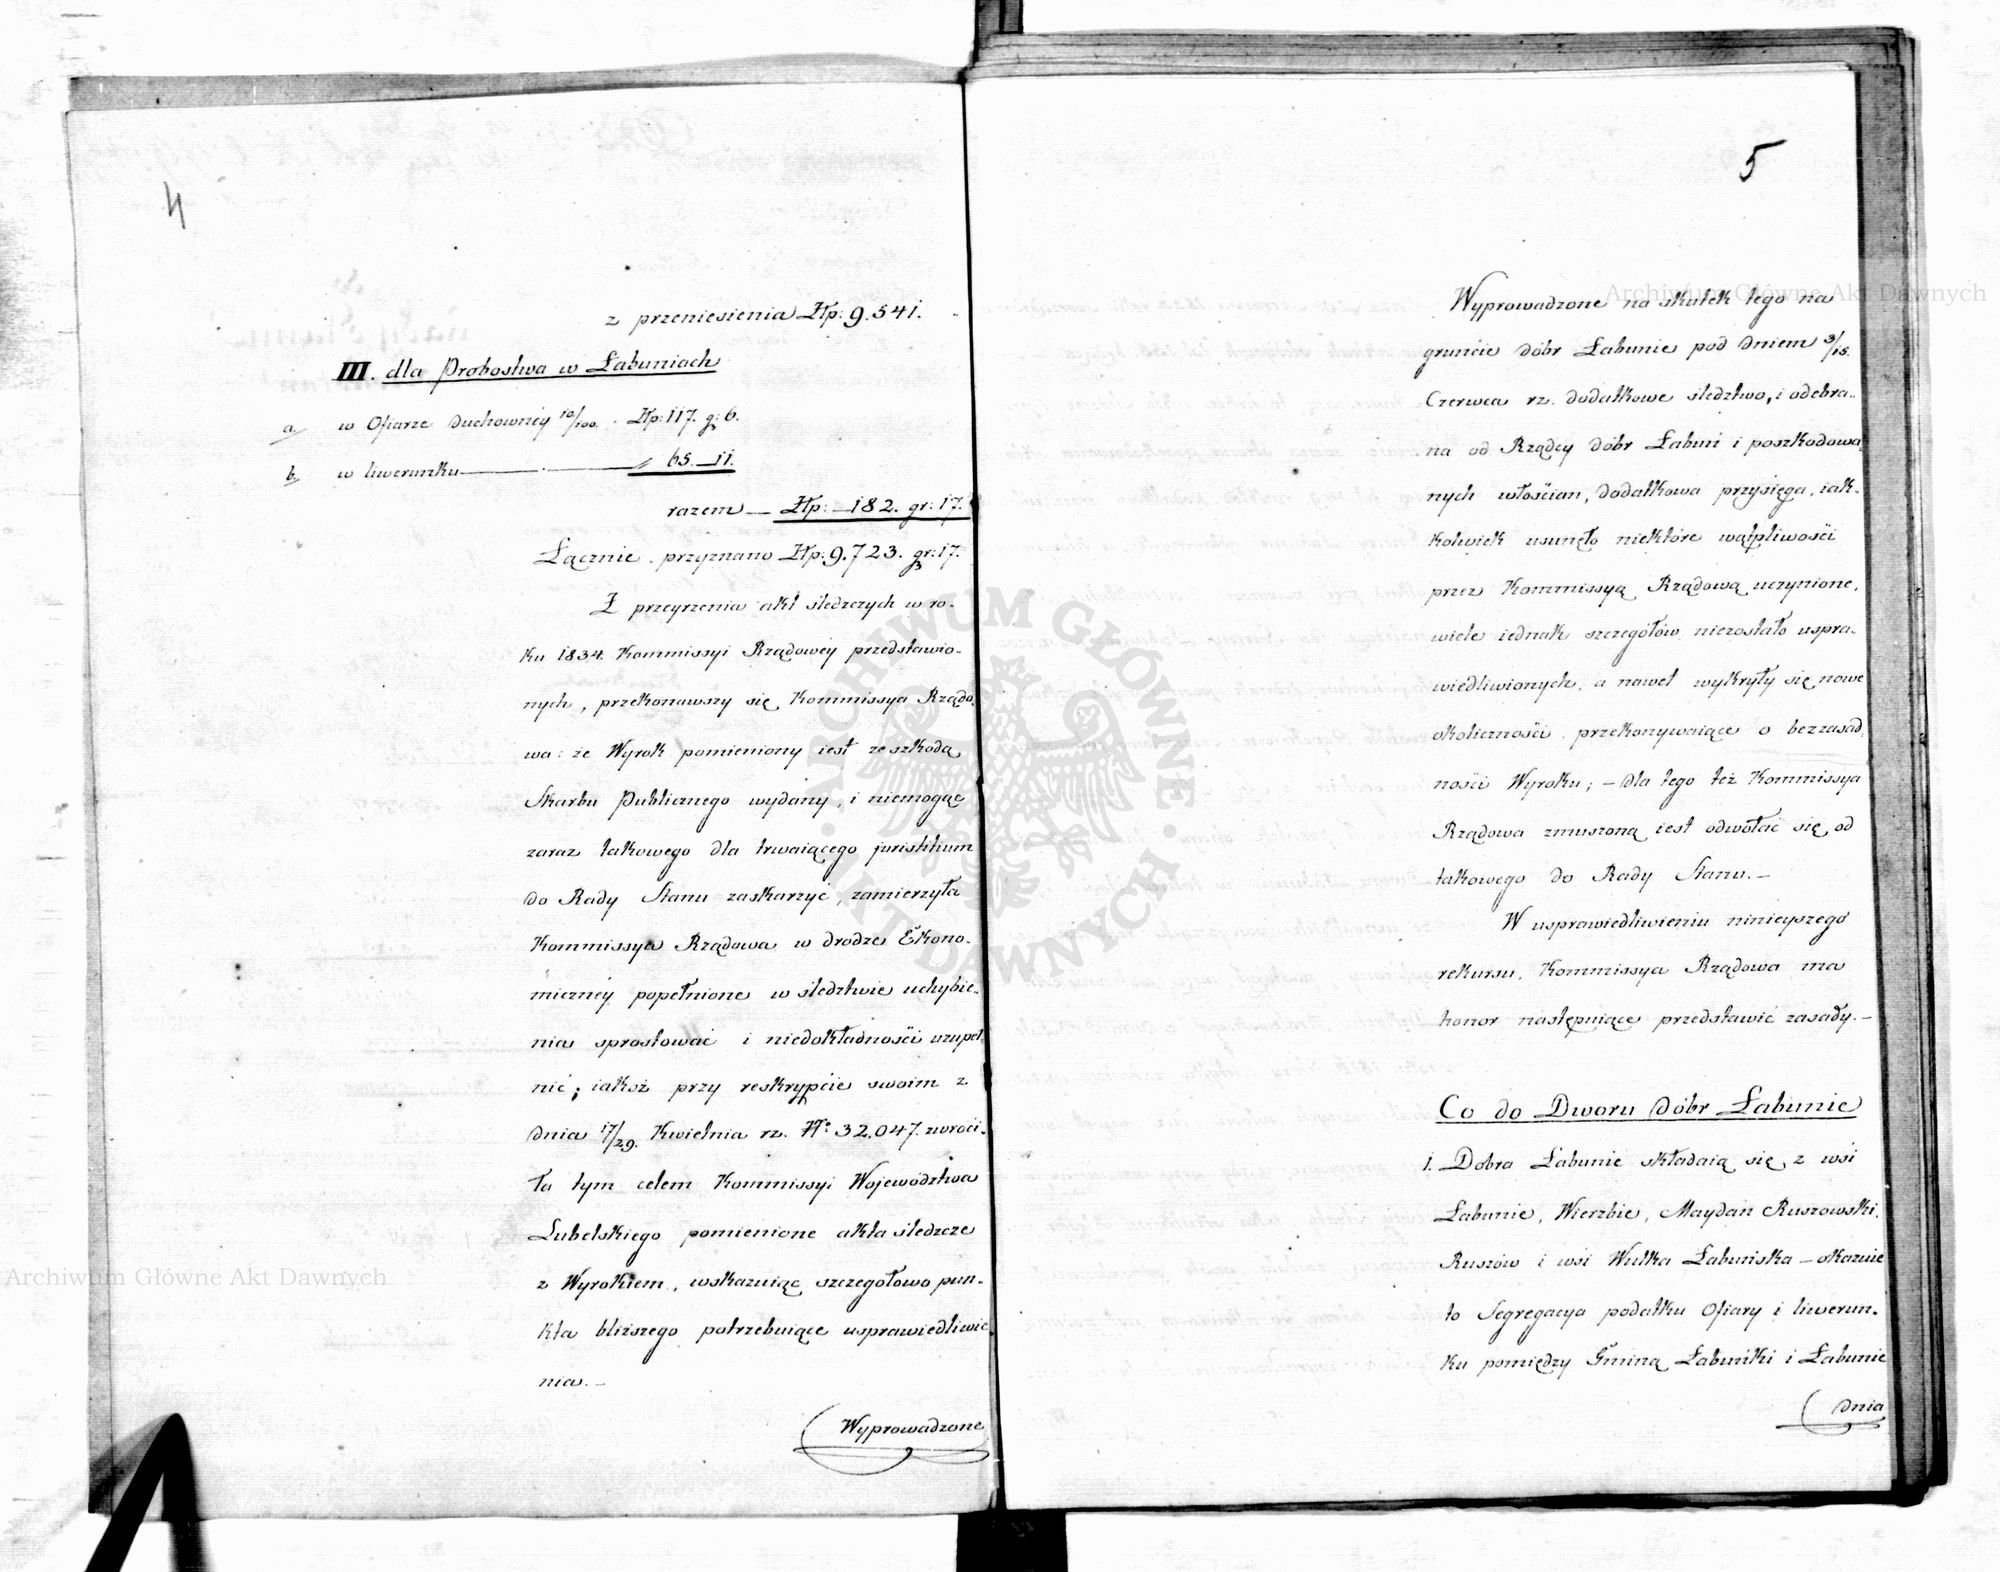 4
z przeniesienia Złp: 9.541. „
III. dla Probostwa w Łabuniach
a. w Ofiarze Duchowney 10/100. Złp: 117. g: 6.
b. w liwerunku — „ 65. — 11.
razem — Złp: — 182. gr: 17.
Łącznie przyznano Złp: 9.723. gr: 17.
Z przeyrzenia akt śledczych w ro-
ku 1834 Kommissyi Rządowey przedstawio-
nych, przekonawszy się Kommissya Rządo-
wa: że Wyrok pomieniony iest ze szkodą
Skarbu Publicznego wydany, i niemogąc
zaraz takowego dla trwaiącego juristitium
do Rady Stanu zaskarżyć, zamierzyła
Kommissya Rządowa w drodze Ekono-
miczney popełnione w śledztwie uchybie-
nia sprostować i niedokładności uzupeł-
nić; iakoż przy reskrypcie swoim z
dnia 17/29. Kwietnia rz. No 32,047. zwróci-
ła tym celem Kommissyi Województwa
Lubelskiego pomienione akta śledcze
z Wyrokiem, wskazuiąc szczegółowo pun-
kta bliższego potrzebuiące usprawiedliwie
nia. —
Wyprowadzone
5
Wyprowadzone na skutek tego na
gruncie dóbr Łabunie pod dniem 3/15.
Czerwca rz. dodatkowe śledztwo, i odebra-
na od Rządcy dóbr Łabuń i poszkodowa-
nych włościan, dodatkowa przysięga, iak-
kolwiek usunęło niektóre wątpliwości
przez Kommissyą Rządową uczynione,
wiele iednak szczegółów niezostało uspra-
wiedliwionych, a nawet wykryły się nowe
okoliczności, przekonywaiące o bezzasad-
ności Wyroku; — dla tego też Kommissya
Rządowa zmuszoną iest odwołać się od
takowego do Rady Stanu. —
W usprawiedliwieniu ninieyszego
rekursu, Kommissya Rządowa ma
honor następuiące przedstawić zasady. —
Co do Dworu dóbr Łabunie
1. Dobra Łabunie składaią się z wsi
Łabunie, Wierzbie, Maydan Ruszowski,
Ruszów i wsi Wulka Łabuńska — okazuie
to Segregacya podatku Ofiary i liwerun-
ku pomiędzy Gminą Łabuńki i Łabunie
dnia
Archiwum Główne Akt Dawnych
Archiwum Główne Akt Dawnych
ARCHIWUM GŁÓWNE AKT DAWNYCH